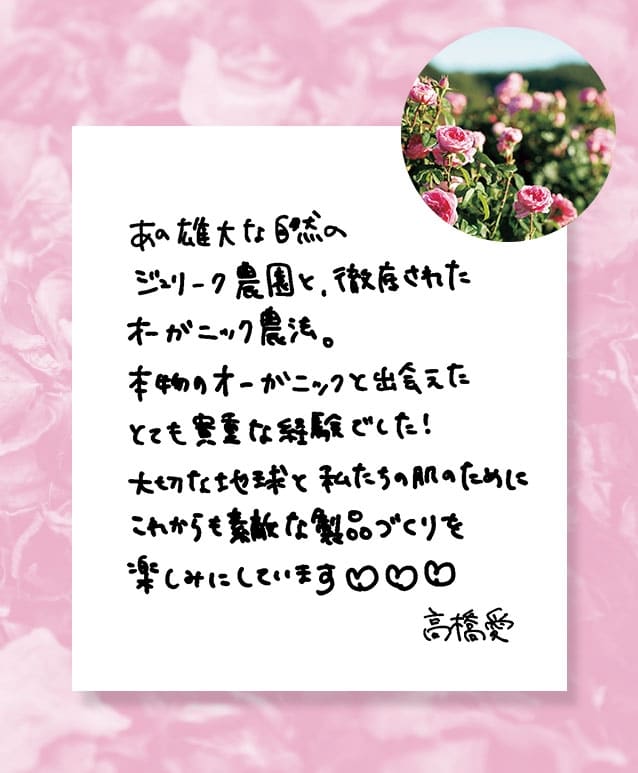 あの雄大な自然の
ジュリーク農園と、徹底された
オーガニック農法。
本物のオーガニックと出会えた
とても貴重な経験でした!
大切な地球と私たちの肌のために
これからも素敵な製品づくりを
楽しみにしています♡♡♡
高橋愛